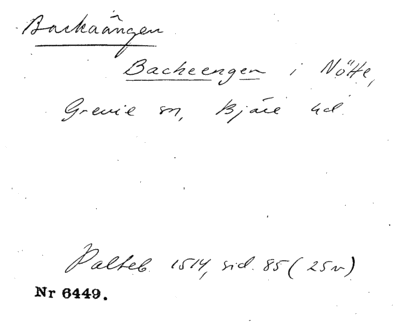 Backaängen
Backeengen i Nötte,
Grevie sn, Bjäre hd.
Palteb. 1514, sid. 85 (25v)
Nr 6449.